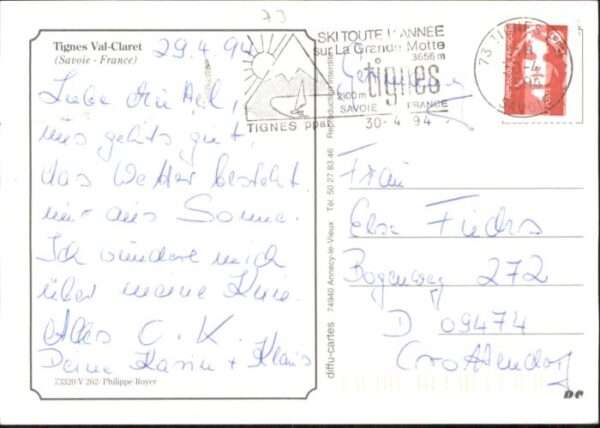 73
Tignes Val-Claret
(Savoie - France)
29.4.94
Liebe
uns gehts gut,
das Wetter besteht
nur aus Sonne.
Ich wundere mich
über meine Knie.
Alles O.K.
Deine Karin + Klaus
73320 V 262- Philippe Royer
diffu-cartes 74940 Annecy-le-Vieux Tél. 50 27 83 46 Reproduction interdite
SKI TOUTE L'ANNEE
sur La Grande Motte
3656m
tignes
2100m
SAVOIE FRANCE
TIGNES ppal
30-4 94
73 TIGNES
Frau
Elsa Fiedrs
Bogenweg 272
D 09474
Crottendorf